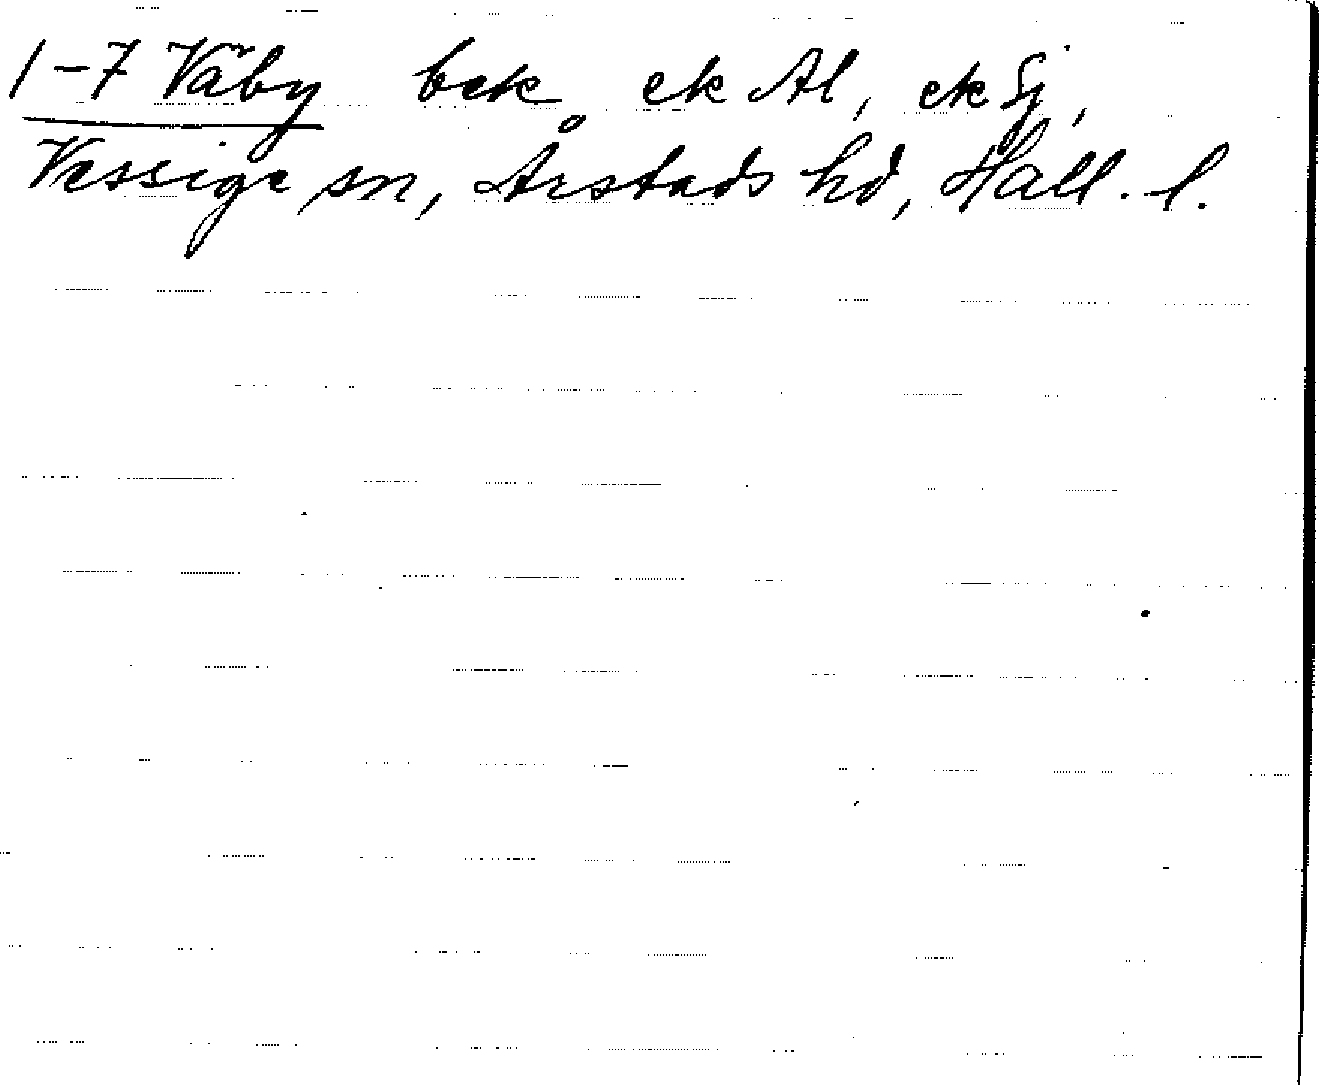 1-7 Väby bek ek Al, ek Sj,
Vessige sn, Årstads hd, Hall. l.